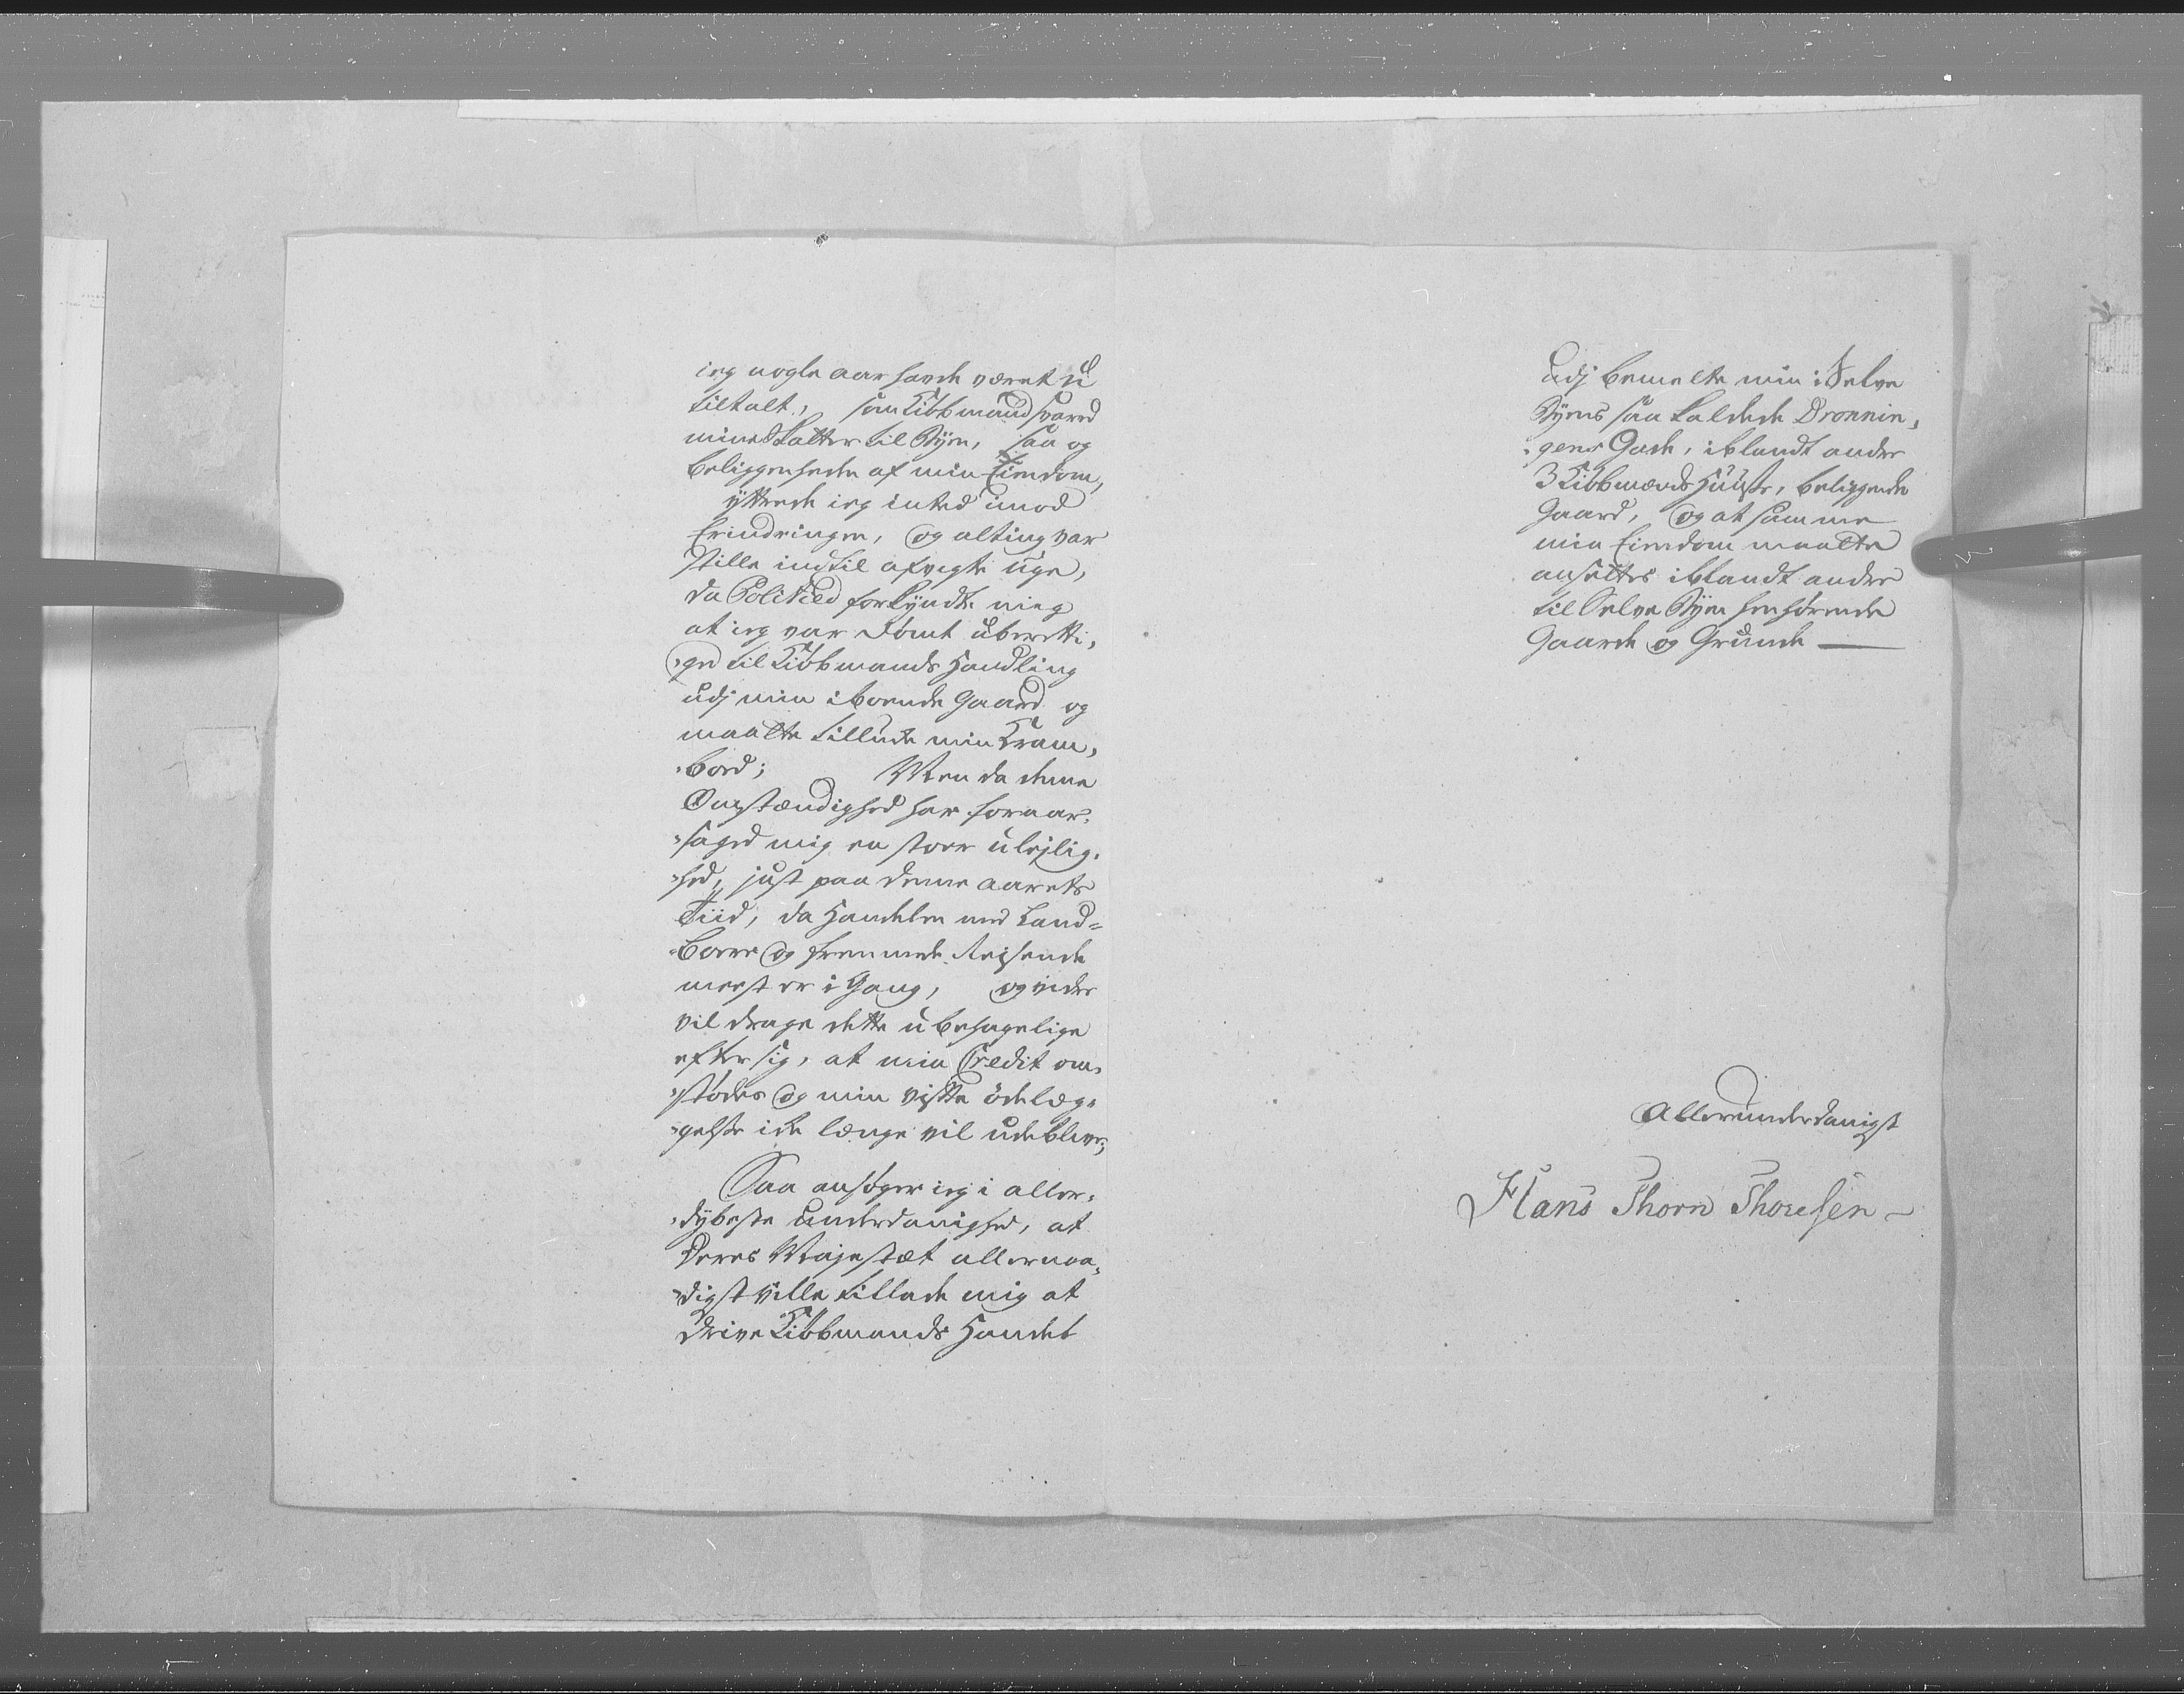 ieg nogle aar havde været u
tiltalt, som Kiöbmand svared
mine Skatter til Byen, saa og
beliggenhede af min Eiendom,
yttrede ieg inted imod
Erindringen, og alting var
stille indtil afvigte uge,
da Politied forkyndte mig
at ieg var Dömt uberetti,
„get til Kiöbmands Handling
udj min iboende Gaard og
maatte tillukke min Kram,
„bod; Men da denne
Omstændighed har foraar,
„saged mig en stoer ulejlig,
„hed, just paa denne aarets
Tiid, da Handelen med Land=
„boere og fremmede Reisende
meest er i Gang, og vider
vil drage dette ubehagelige
efter sig, at min Credit om,
„stödes og min visse ödelæg,
„gelse ike længe vil udeblive;
Saa ansöger ieg i aller,
„dybeste Underdanighed, at
Deres Majestæt allernaa,
„digst ville tillade mig at
drive Kiöbmands Handel
udj bemelte min i Selve
Byens saa kaldede Dronnin,
„gens Gade, iblandt andre
3 Kiöbmænds Huuse, beliggende
Gaard, og at samme
min Eiendom maatte
ansættes iblandt andre
til Selve Byen henhörende
Gaarde og Grunde —
Allerunderdanigst
Hans Thorn Thoresen